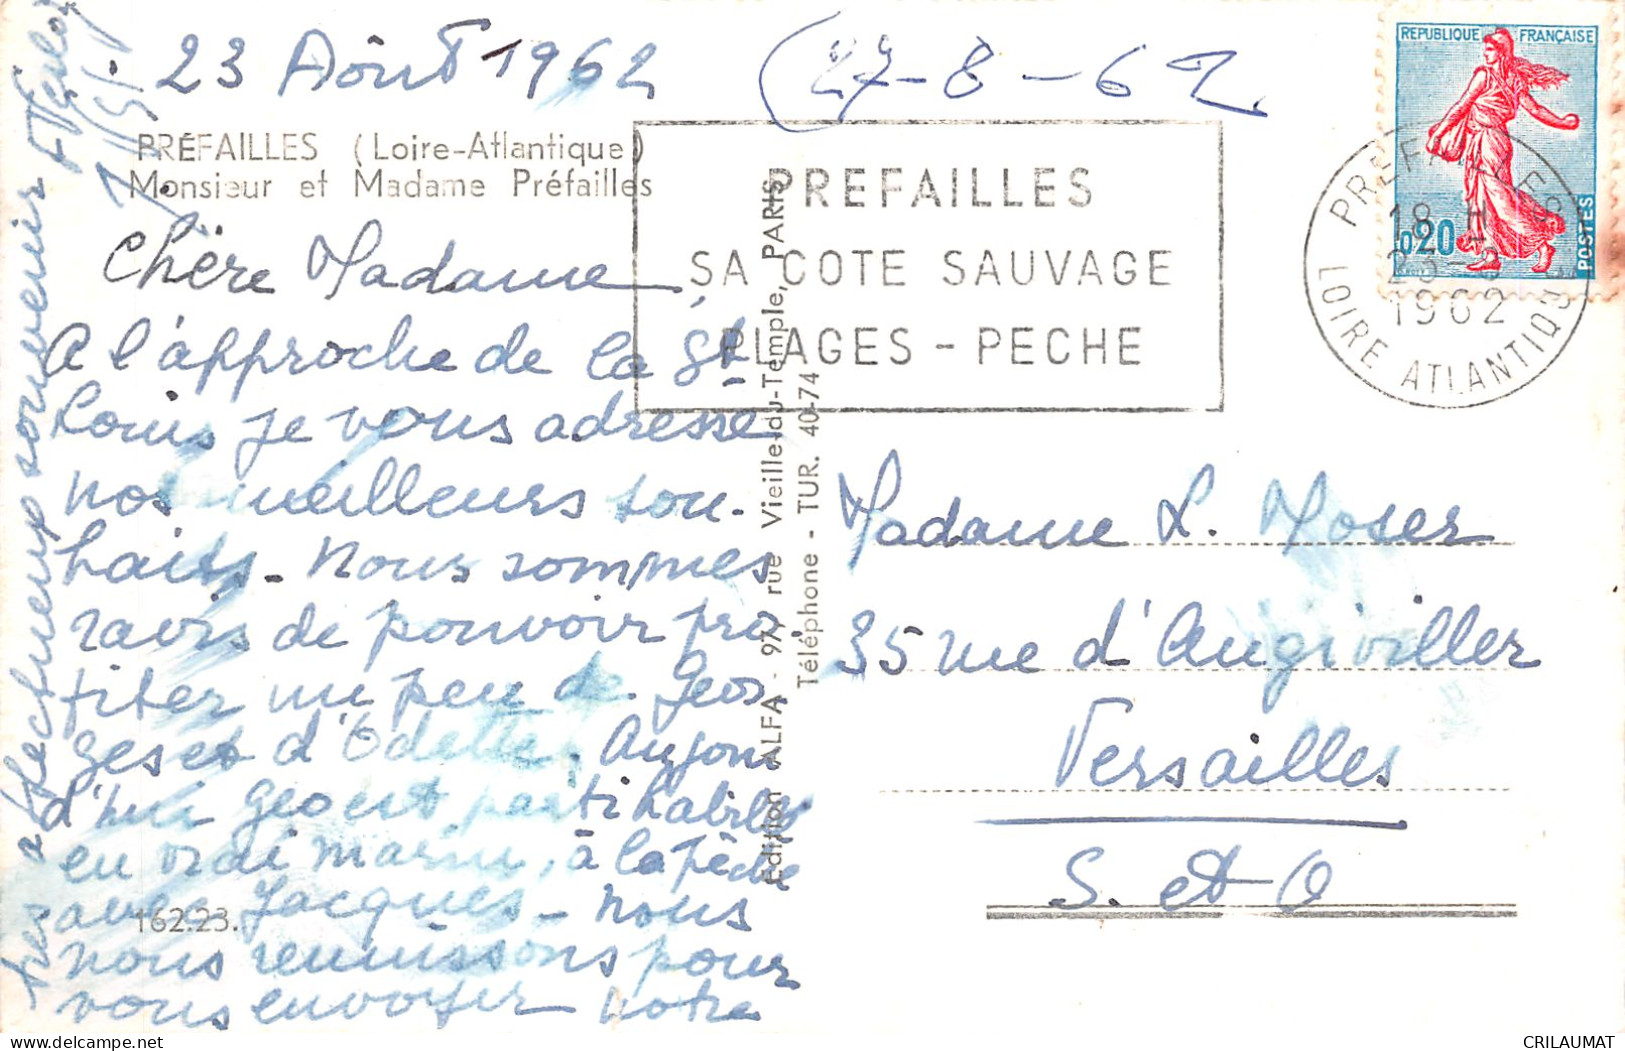 23 Aôut 1962
(27-8-62
PRÉFAILLES (Loire-Atlantique)
Monsieur et Madame Préfailles
Chère Madame,
A l'approche de la St
Louis je vous adresse
nos meilleurs sou-
haits - Nous sommes
ravis de pouvoir pro
fiter un peu de Geor
ges et d'Odette. Aujour
d'hui Geo est parti habillé
en vrai marin, à la pêche
avec Jacques - Nous
nous reunissons pour
vous envoyer notre
très affectueux souvenir
162.23.
Edition ALFA - 97, rue Vieille-du-Temple, PARIS
Téléphone - TUR. 40-74
PREFAILLES
SA COTE SAUVAGE
PLAGES - PECHE
REPUBLIQUE FRANÇAISE
0,20
POSTES
PREFAILLES
18 H
23-8
1962
LOIRE ATLANTIQUE
Madame L. Moser
35 rue d'Angiviller
Versailles
S. et O
CRILAUMAT